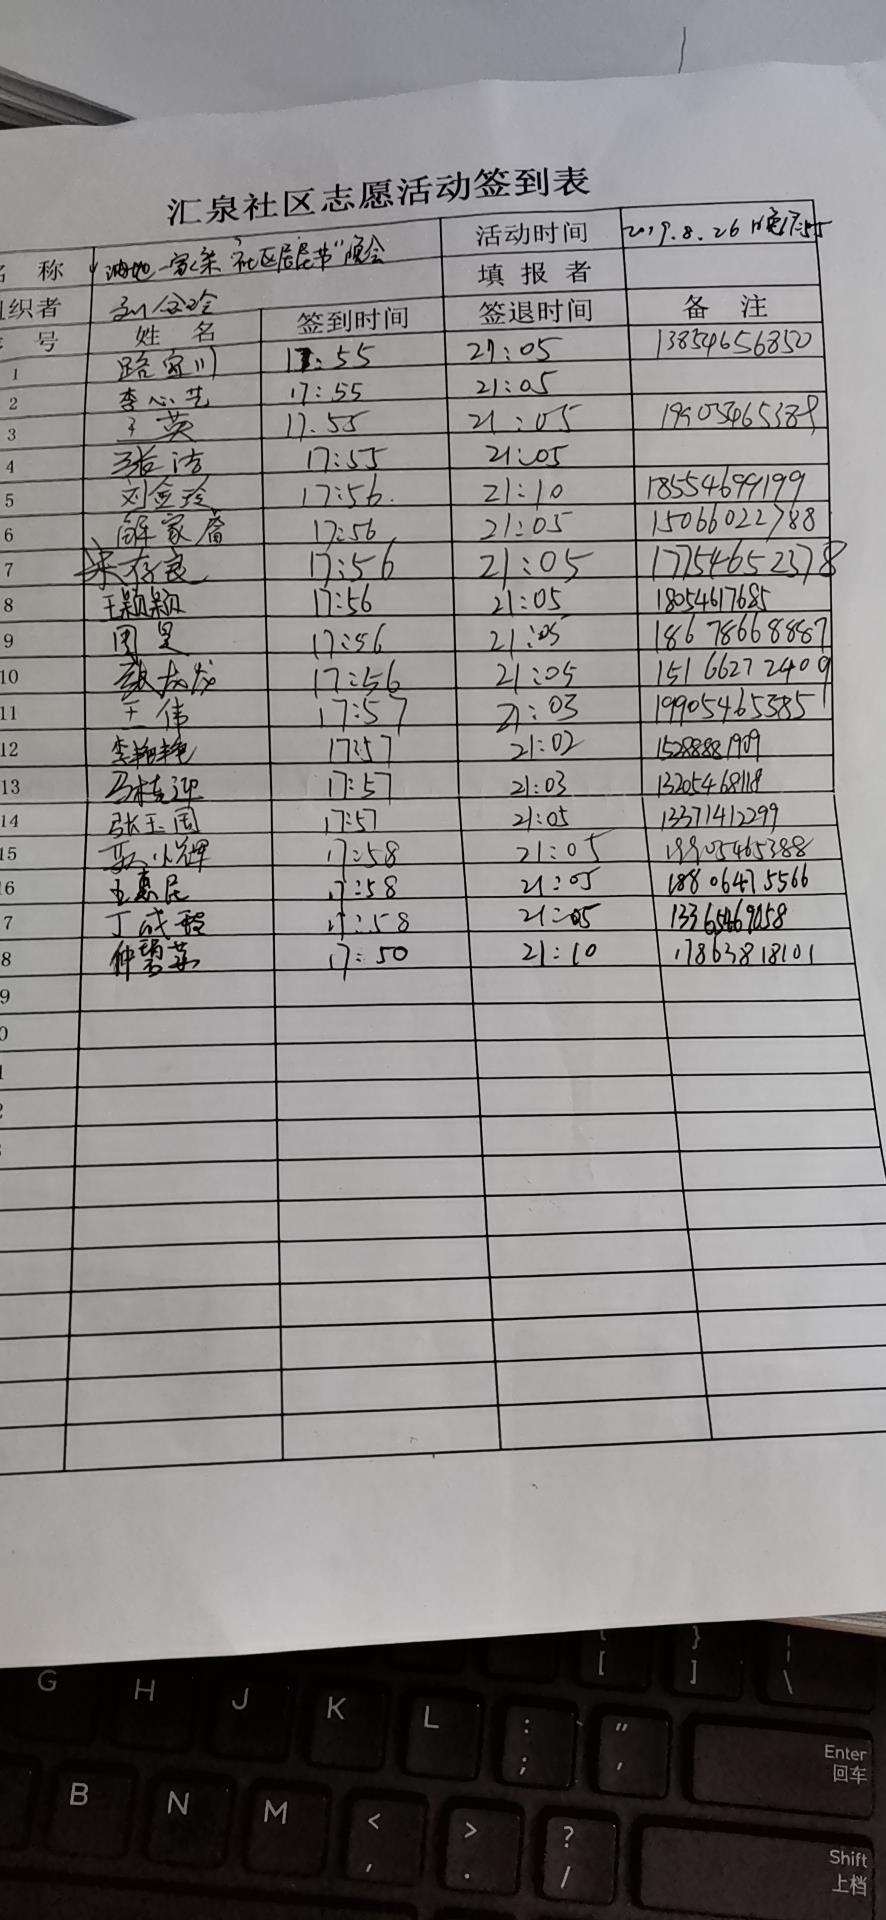 汇泉社区志愿活动签到表
名 称 "油地一家亲"社区居民节"晚会 活动时间 2019.8.26 17:55
组织者 刘金玲 填报者
号 姓 名 签到时间 签退时间 备 注
1 路家川 17:55 21:05 13854656850
2 李心艺 17:55 21:05
3 王英 17.55 21:05 19905465389
4 张洁 17:55 21:05
5 刘金玲 17:56. 21:10 18554699199
6 解家 17:56 21:05 15066022788
7 宋存良 17:56 21:05 17754652378
8 王颖颖 17:56 21:05 18054617685
9 周昊 17:56 21:05 18678668887
10 17:56 21:05 15166272409
11 王伟 17:57 21:03 19905465385
12 李艳艳 17:57 21:02 15288881909
13 马桂迎 17:57 21:03 13205468118
14 张玉周 17:57 21:05 13371412299
15 17:58 21:05 19905465388
6 王惠民 17:58 21:05 18806475566
7 丁成 17:58 21:05 13365469058
8 仲 17:50 21:10 17863818101
9
0
1
2
{ [
} ]
¦ \
G H J K L : ; " ' Enter 回车
B N M < , > . ? / Shift 上档